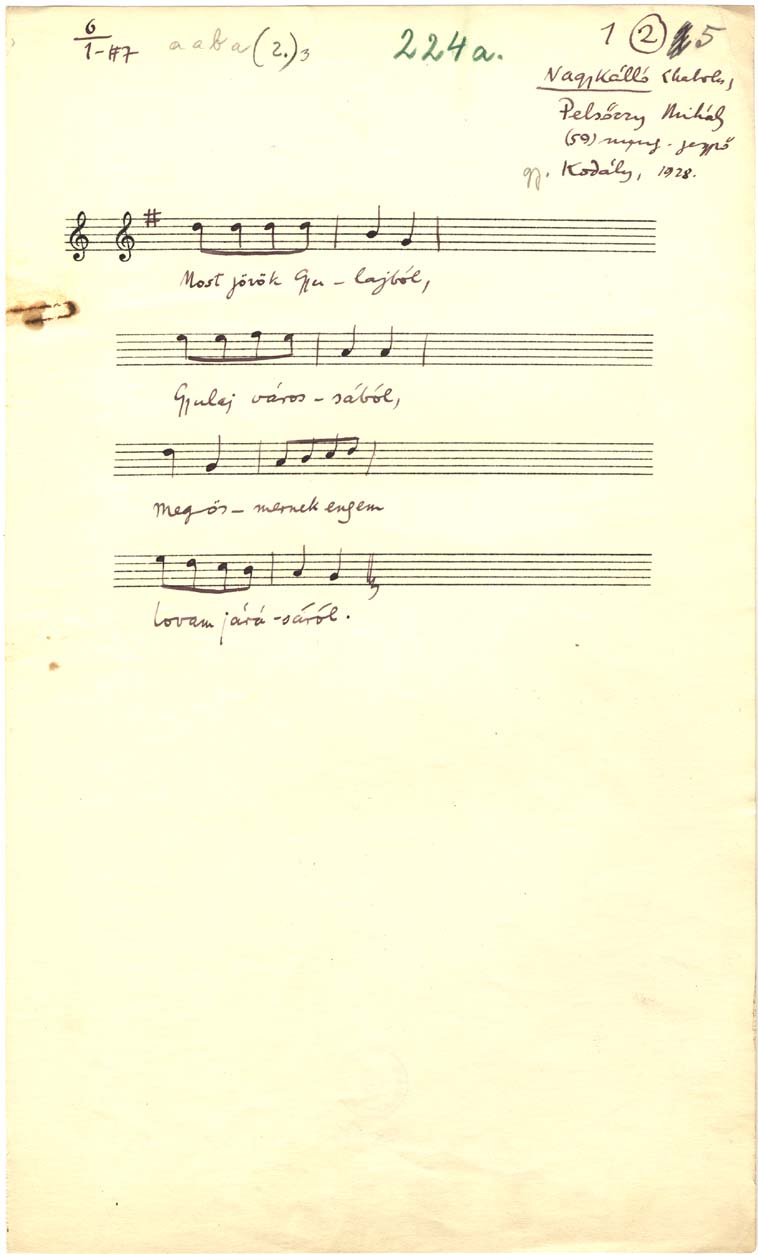 6
1-#7
a a b a (2.)3
224a.
1 (2) 5
Nagykálló Szabolcs,
Pelsőczy Mihály
(59) nyug. jegyző
gy. Kodály, 1928.
Most jövök Gyu - lajból,
Gyulaj város - sából,
meg-ös - mernek engem
lovam járá - sáról.